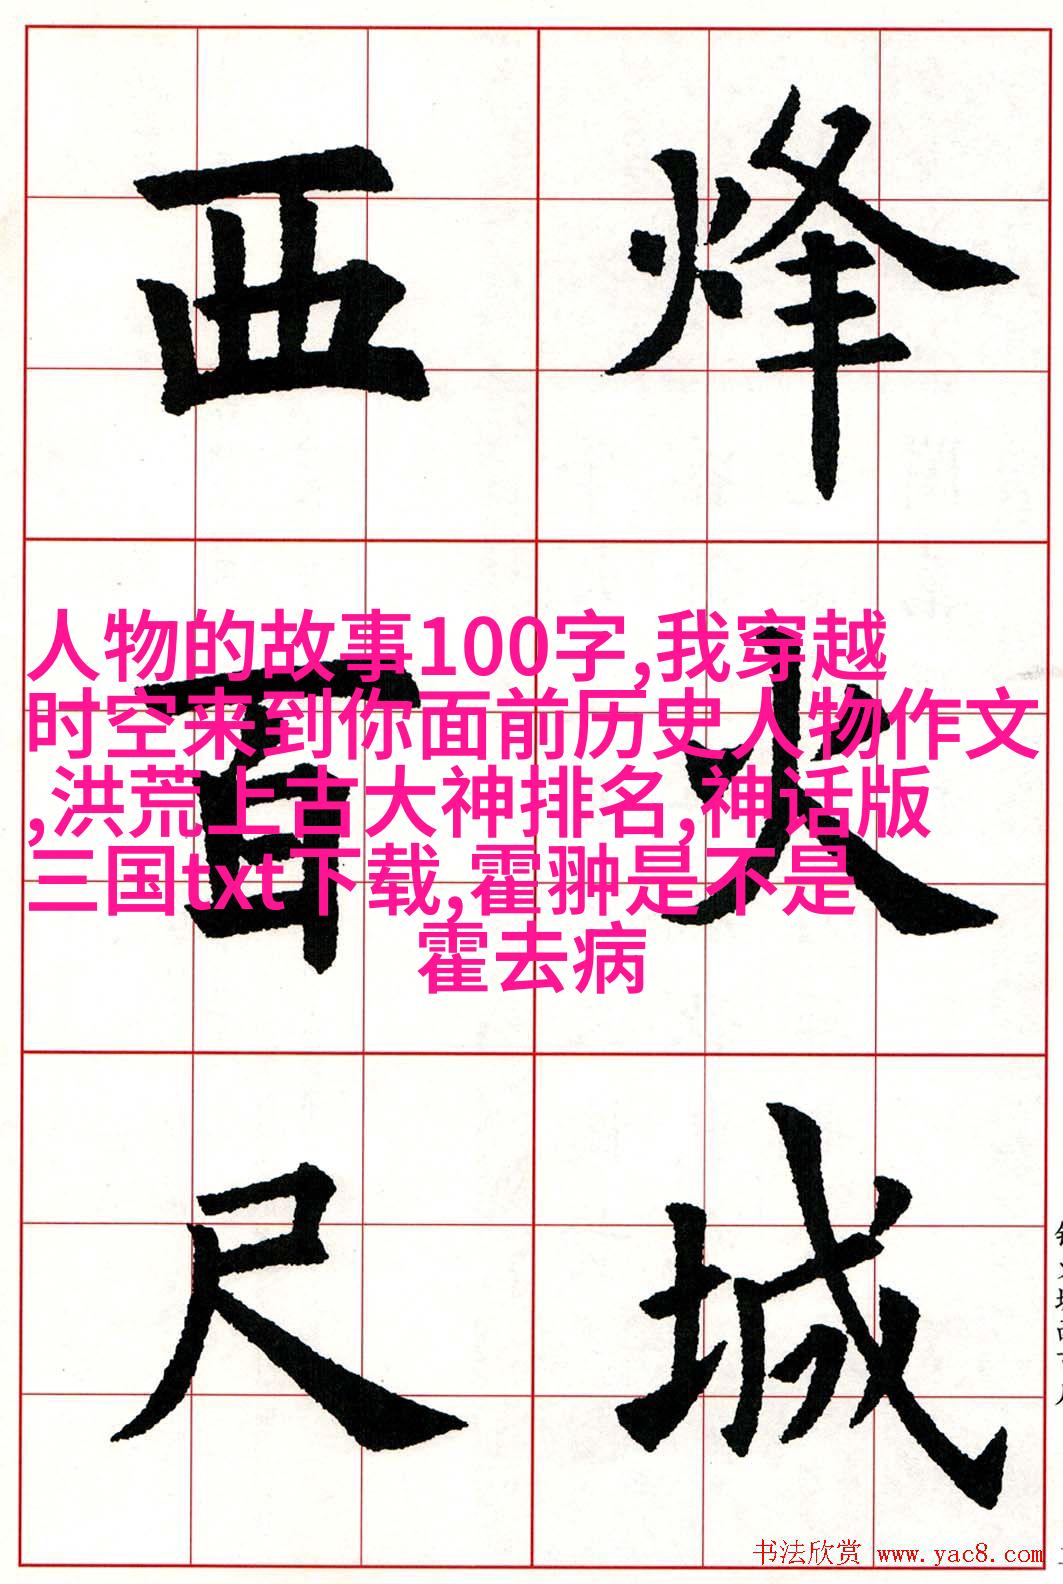 烽火城
西百尺
人物的故事100字,我穿越
时空来到你面前历史人物作文
,洪荒上古大神排名,神话版
三国txt下载,霍翀是不是
霍去病
书法欣赏 www.yac8.com